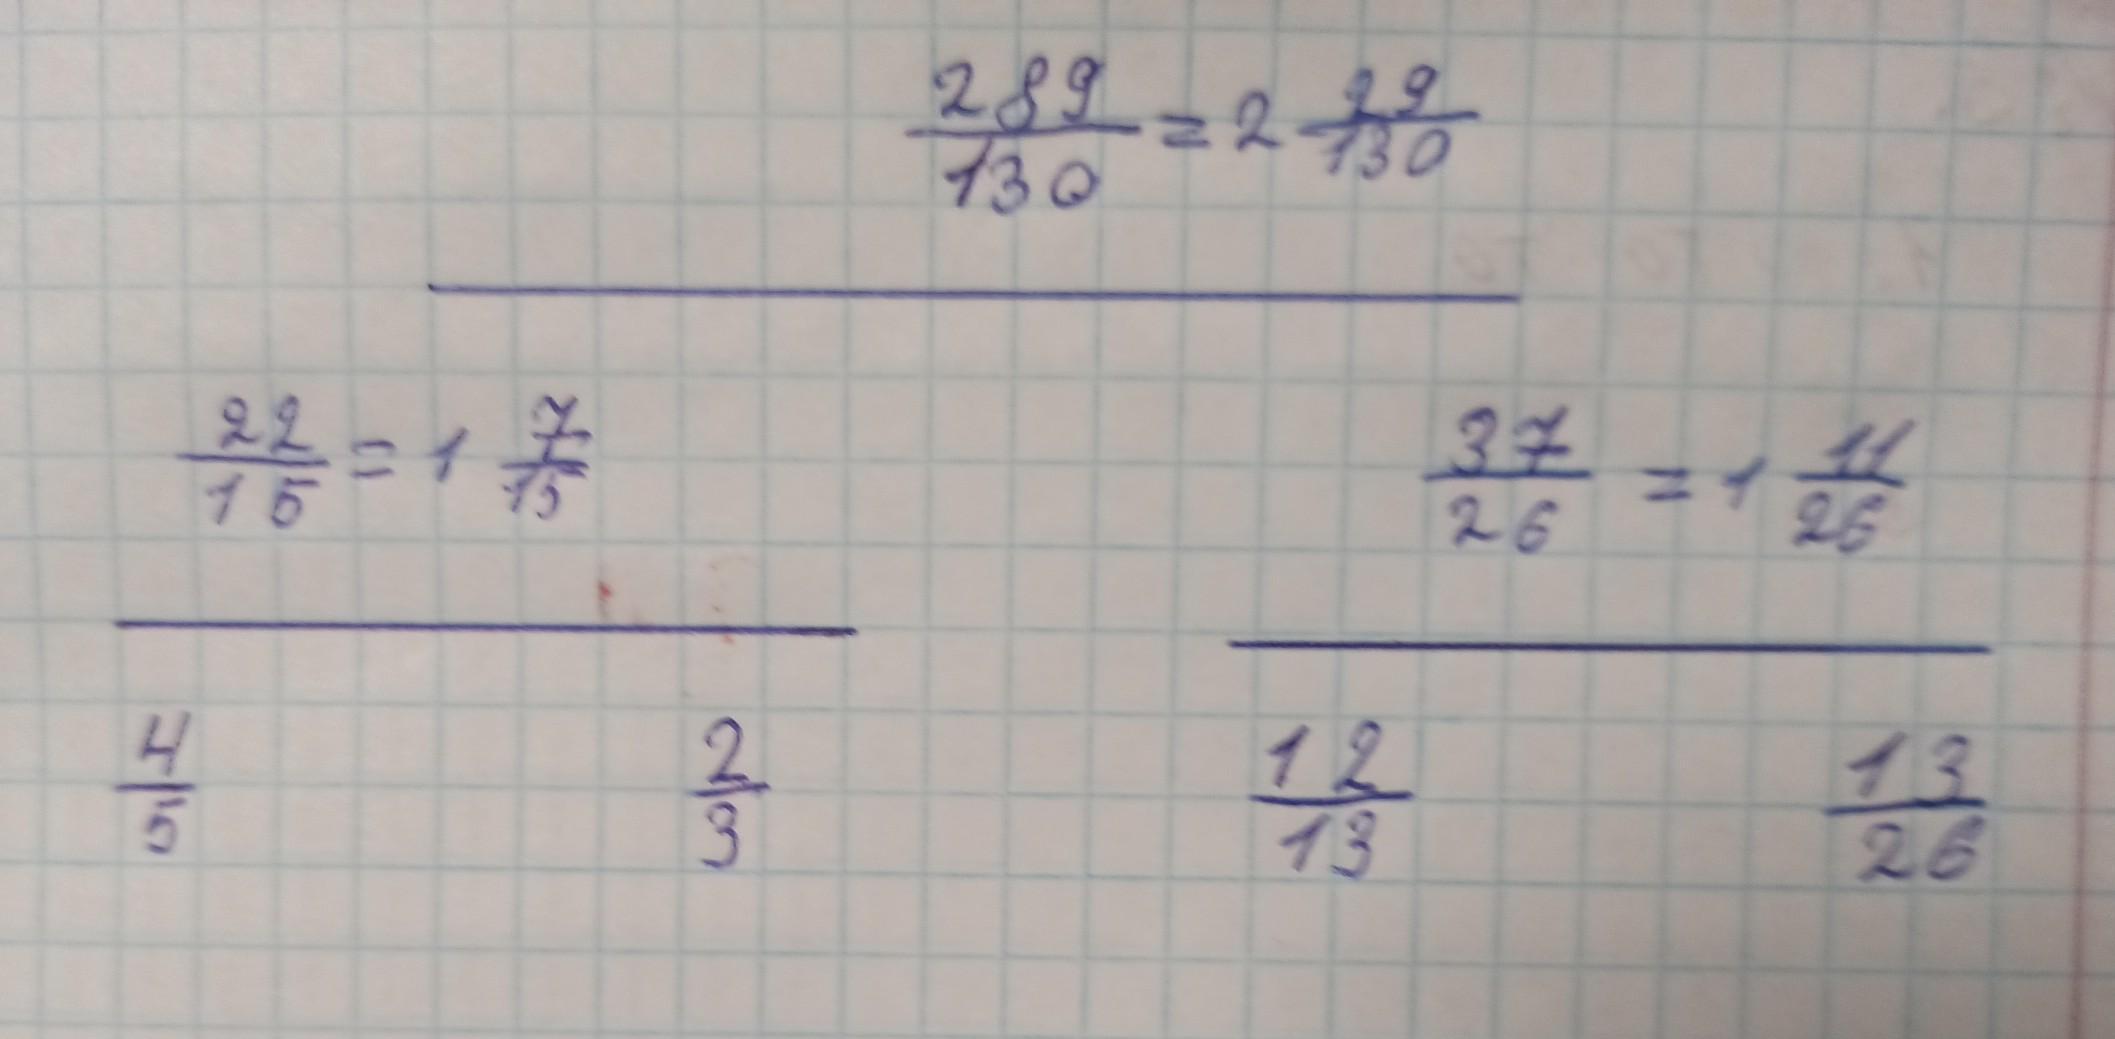 289/130 = 2 29/130
22/15 = 1 7/15 37/26 = 1 11/26
4/5 2/3 12/13 13/26